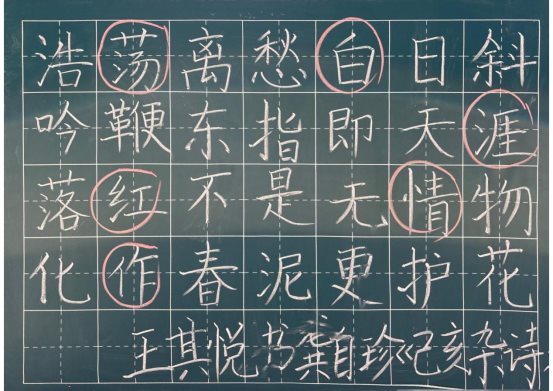 浩荡离愁白日斜
吟鞭东指即天涯
落红不是无情物
化作春泥更护花
王其悦书龚自珍《己亥杂诗